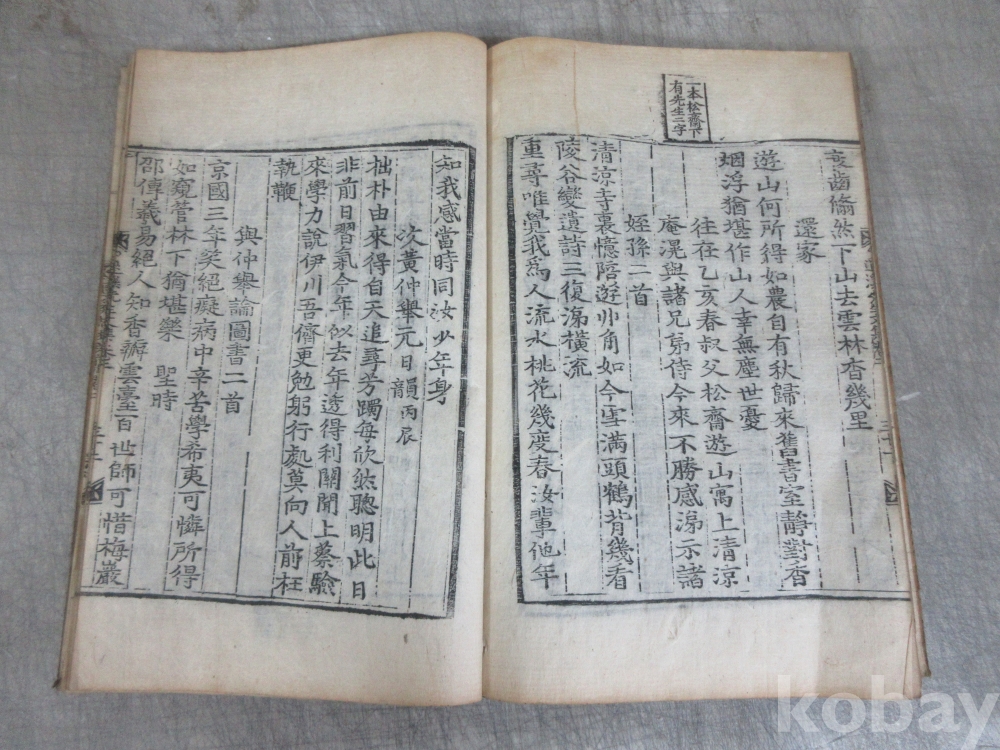 一本松齋下
有先生二字
哀齒翛然下山去雲林杳幾里
還家
遊山何所得如農自有秋歸來舊書室靜對香
烟浮猶堪作山人幸無塵世憂
往在乙亥春叔父松齋遊山寓上清凉
庵滉與諸兄弟侍今來不勝感涕示諸
姪孫二首
清凉寺裏憶陪遊丱角如今雪滿頭鶴背幾看
陵谷變遺詩三復淚橫流
重尋唯覺我爲人流水桃花幾度春汝輩他年
知我感當時同汝少年身
次黃仲擧元日韻 丙辰
拙朴由來得自天追尋芳躅每欣然聰明此日
非前日習氣今年似去年透得利關聞上蔡驗
來學力說伊川吾儕更勉躬行處莫向人前枉
執鞭
與仲擧論圖書二首
京國三年笑絕癡病中辛苦學希夷可憐所得
如窺管林下猶堪樂聖時
邵傳羲易絕人知香瓣雲臺百世師可惜梅巖
kobay